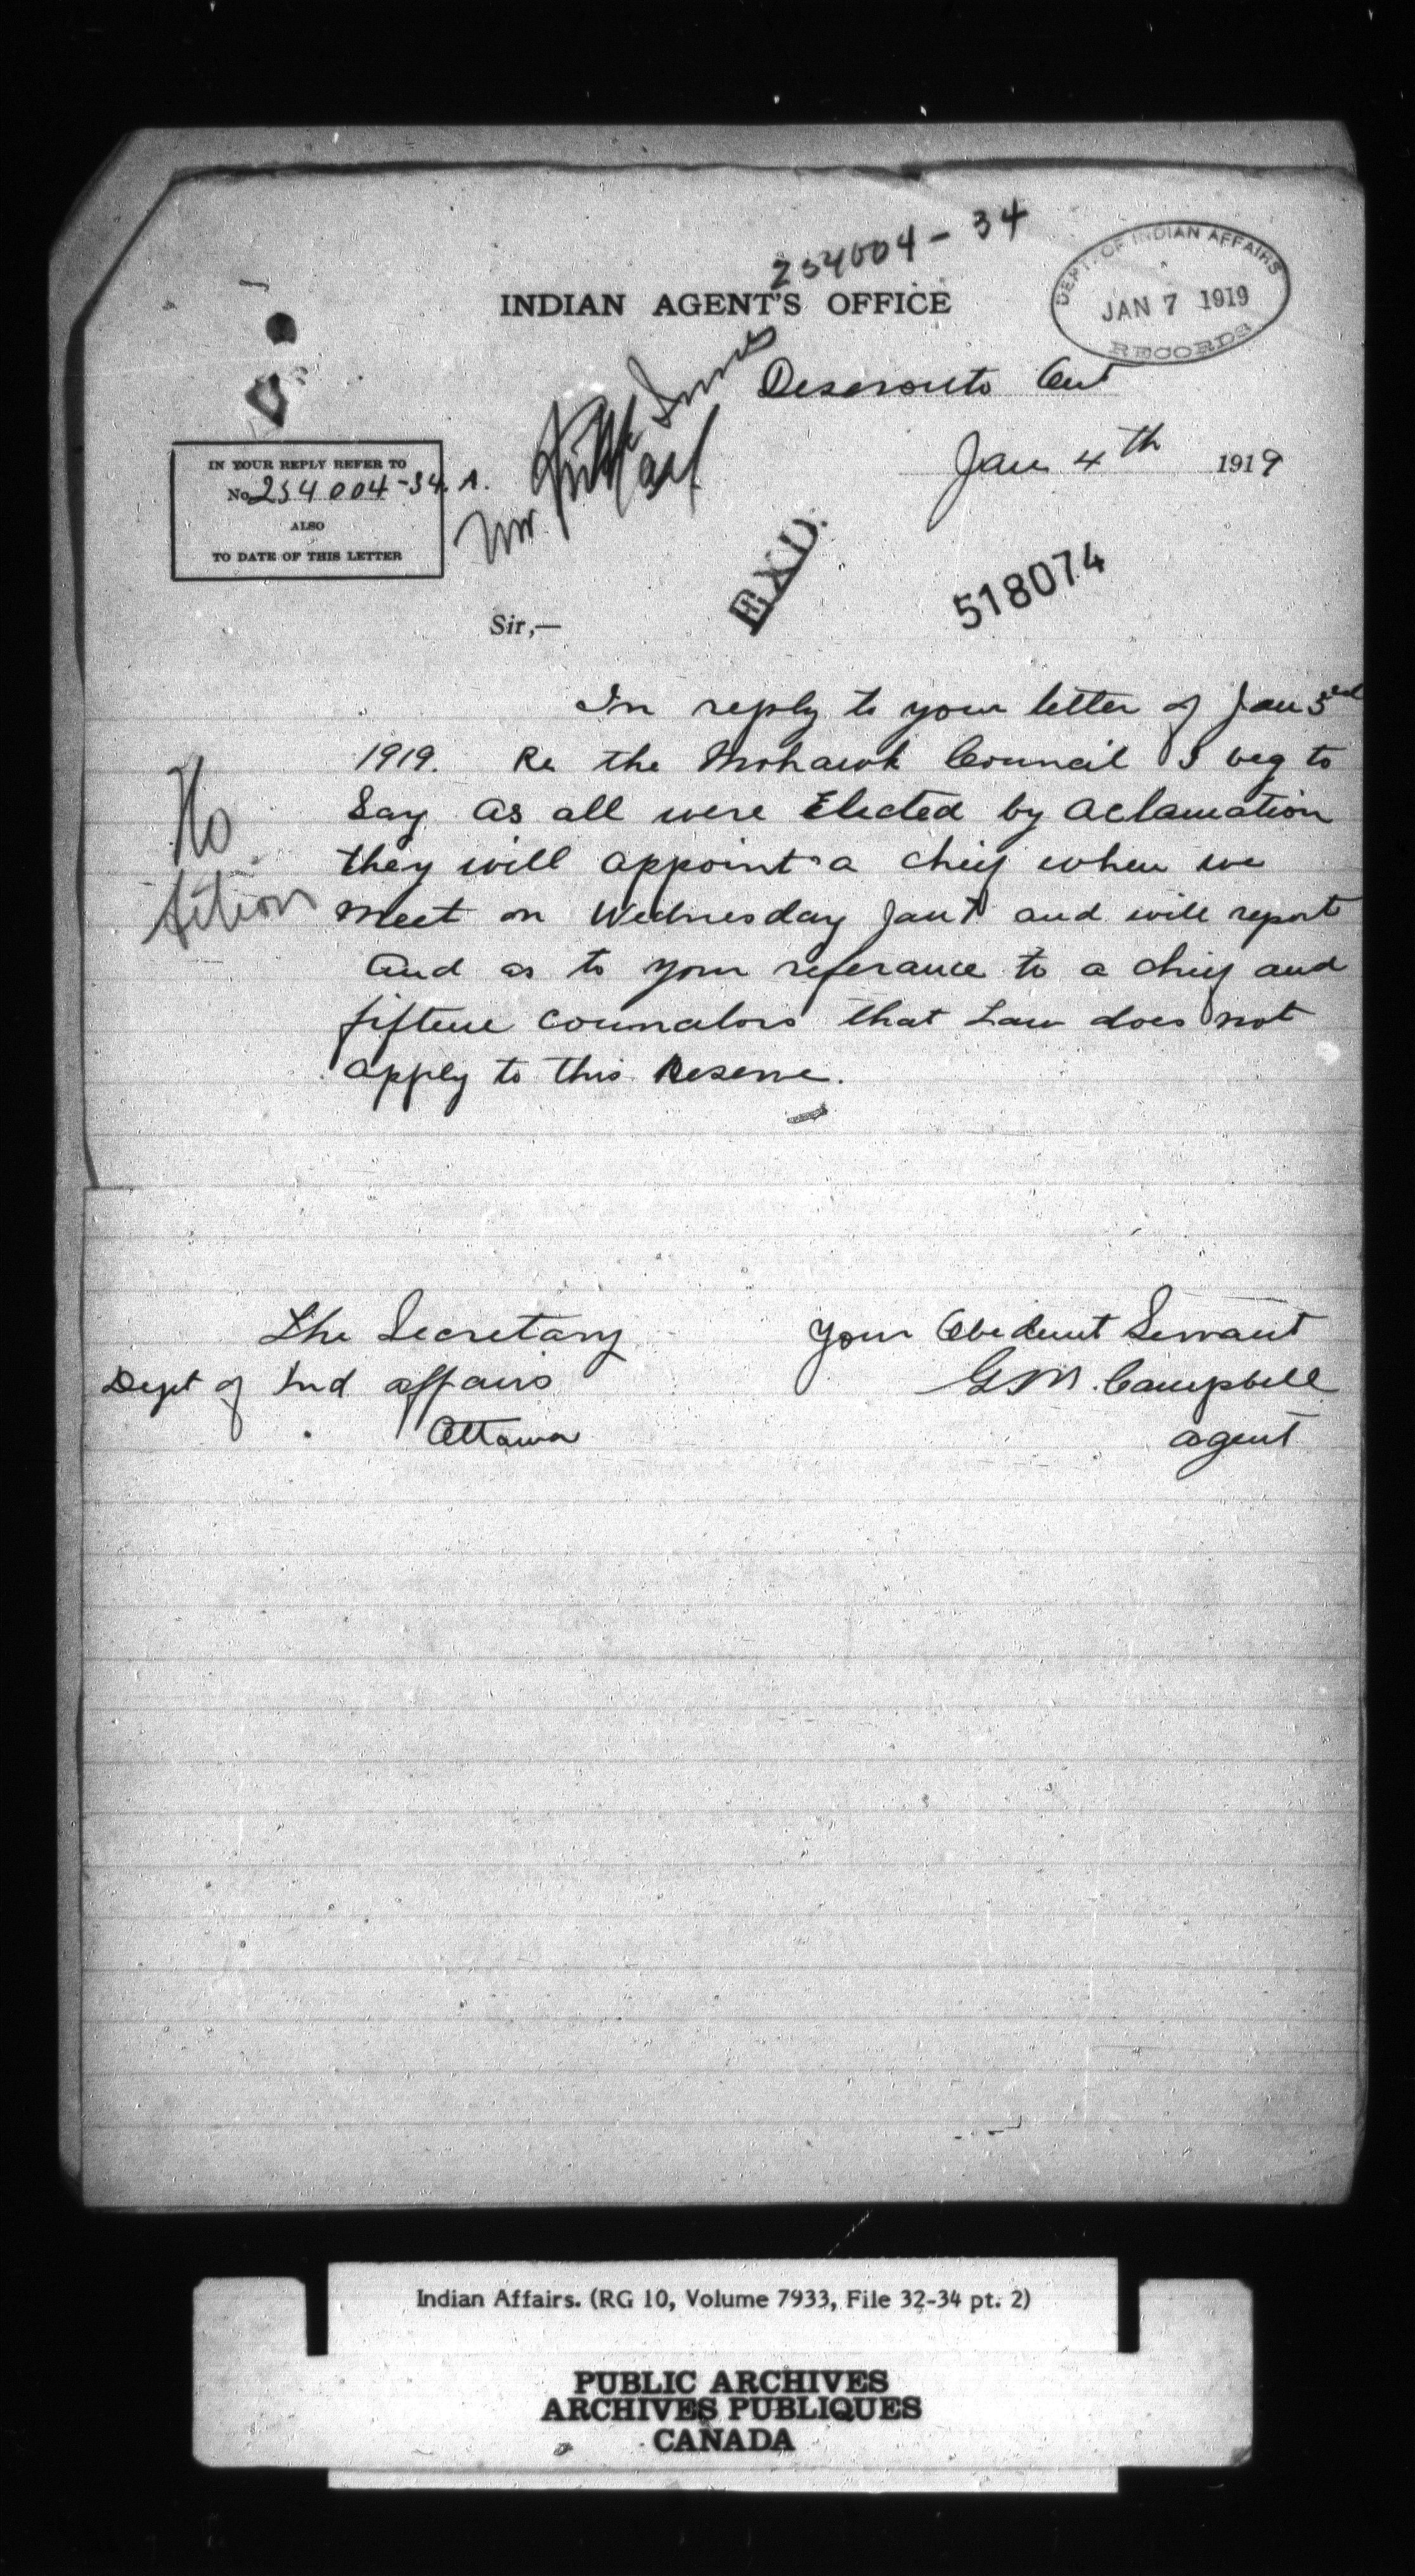 254004-34
DEPT. OF INDIAN AFFAIRS
JAN 7 1919
RECORDS
INDIAN AGENT'S OFFICE
Deseronto Ont
Jan 4th 1919
IN YOUR REPLY REFER TO
No 254004-34. A.
ALSO
TO DATE OF THIS LETTER
Mr.
EXD.
518074
Sir,—
In reply to your letter of Jan 3rd
1919. Re the Mohawk Council I beg to
Say as all were Elected by aclamation
they will appoint a chief when we
meet on Wednesday Jan and will report
And as to your referance to a chief and
fifteen that Law does not
apply to this Reserve.
No
Action
The Secretary
Dept of Ind affairs
Ottawa
Your Obedient Servant
G M. Campbell
agent
Indian Affairs. (RG 10, Volume 7933, File 32-34 pt. 2)
PUBLIC ARCHIVES
ARCHIVES PUBLIQUES
CANADA